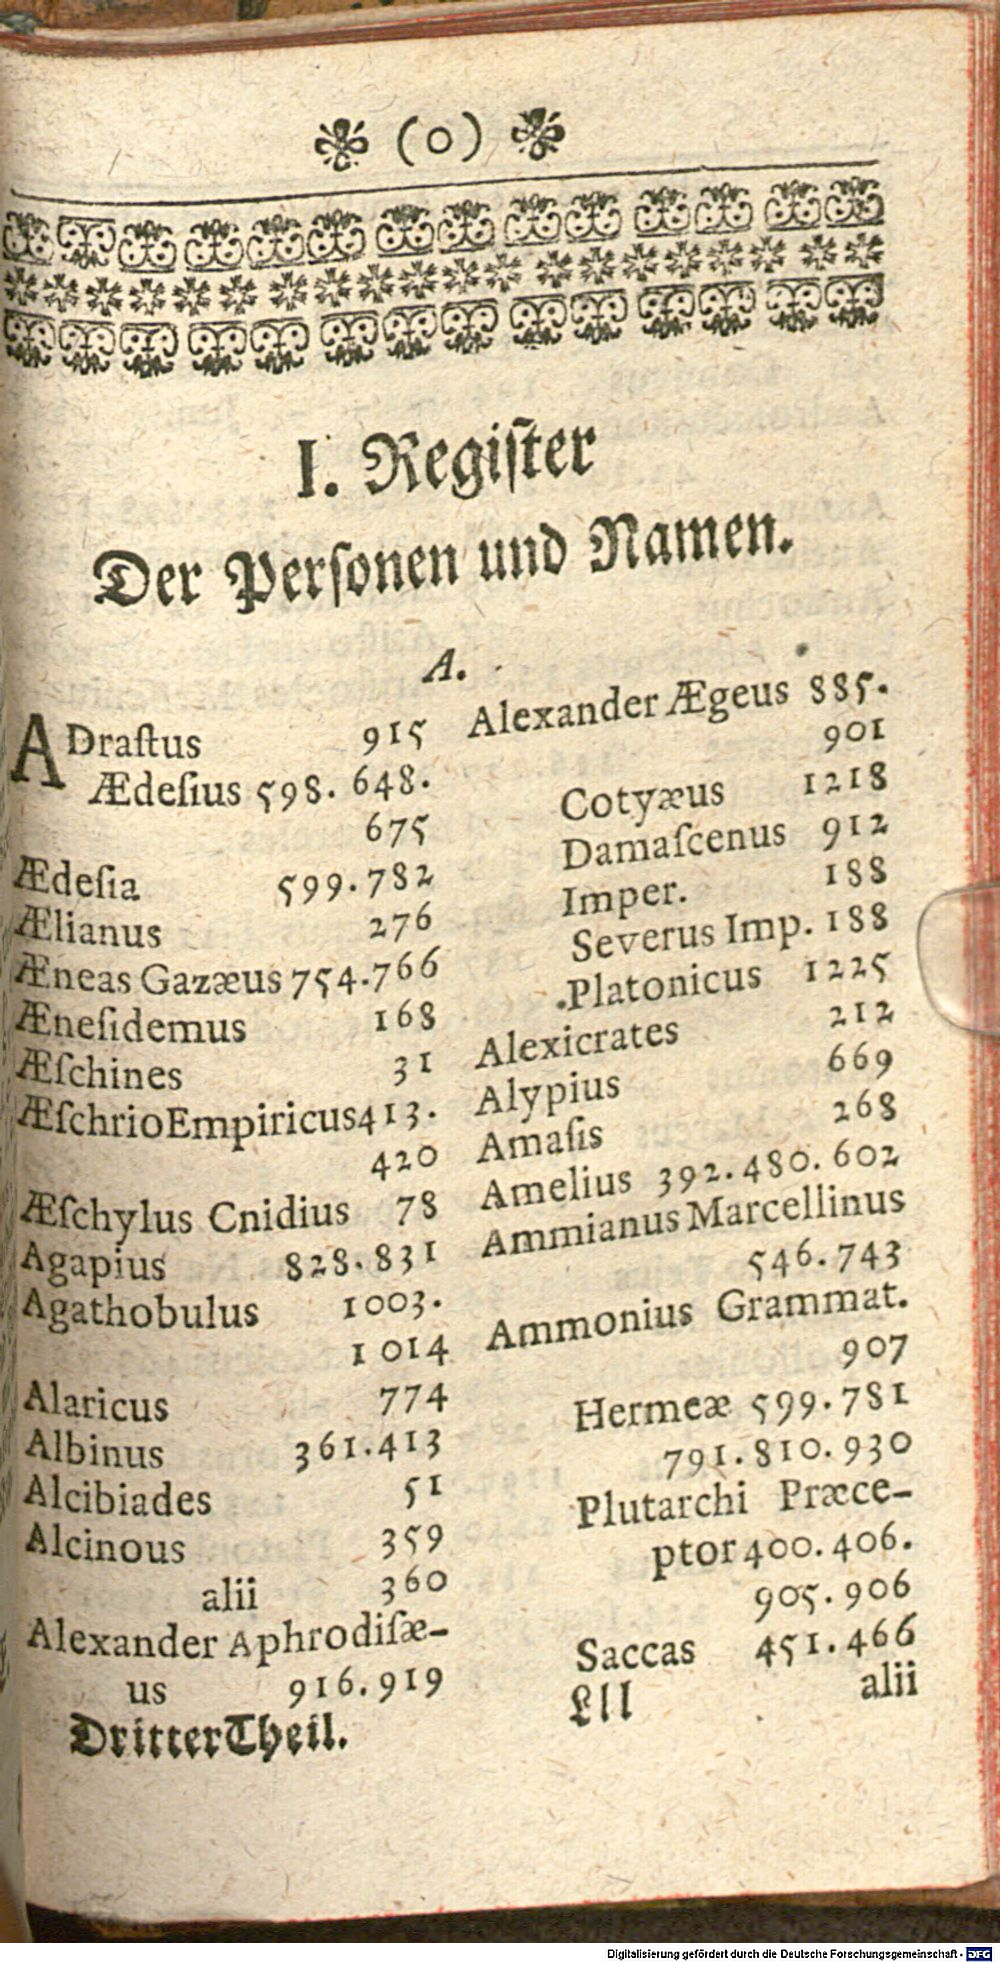 (o)
I. Regiſter
Der Perſonen und Namen.
A.
ADraſtus 915
Ædeſius 598. 648.
675
Ædeſia 599.782
Ælianus 276
Æneas Gazæus 754.766
Æneſidemus 168
Æſchines 31
Æſchrio Empiricus 413.
420
Æſchylus Cnidius 78
Agapius 828.831
Agathobulus 1003.
1014
Alaricus 774
Albinus 361.413
Alcibiades 51
Alcinous 359
alii 360
Alexander Aphrodiſæ-
us 916.919
Alexander Ægeus 885.
901
Cotyæus 1218
Damaſcenus 912
Imper. 188
Severus Imp. 188
Platonicus 1225
Alexicrates 212
Alypius 669
Amaſis 268
Amelius 392.480.602
Ammianus Marcellinus
546.743
Ammonius Grammat.
907
Hermeæ 599.781
791.810.930
Plutarchi Præce-
ptor 400.406.
905.906
Saccas 451.466
Dritter Theil. Lll alii
Digitalisierung gefördert durch die Deutsche Forschungsgemeinschaft - DFG